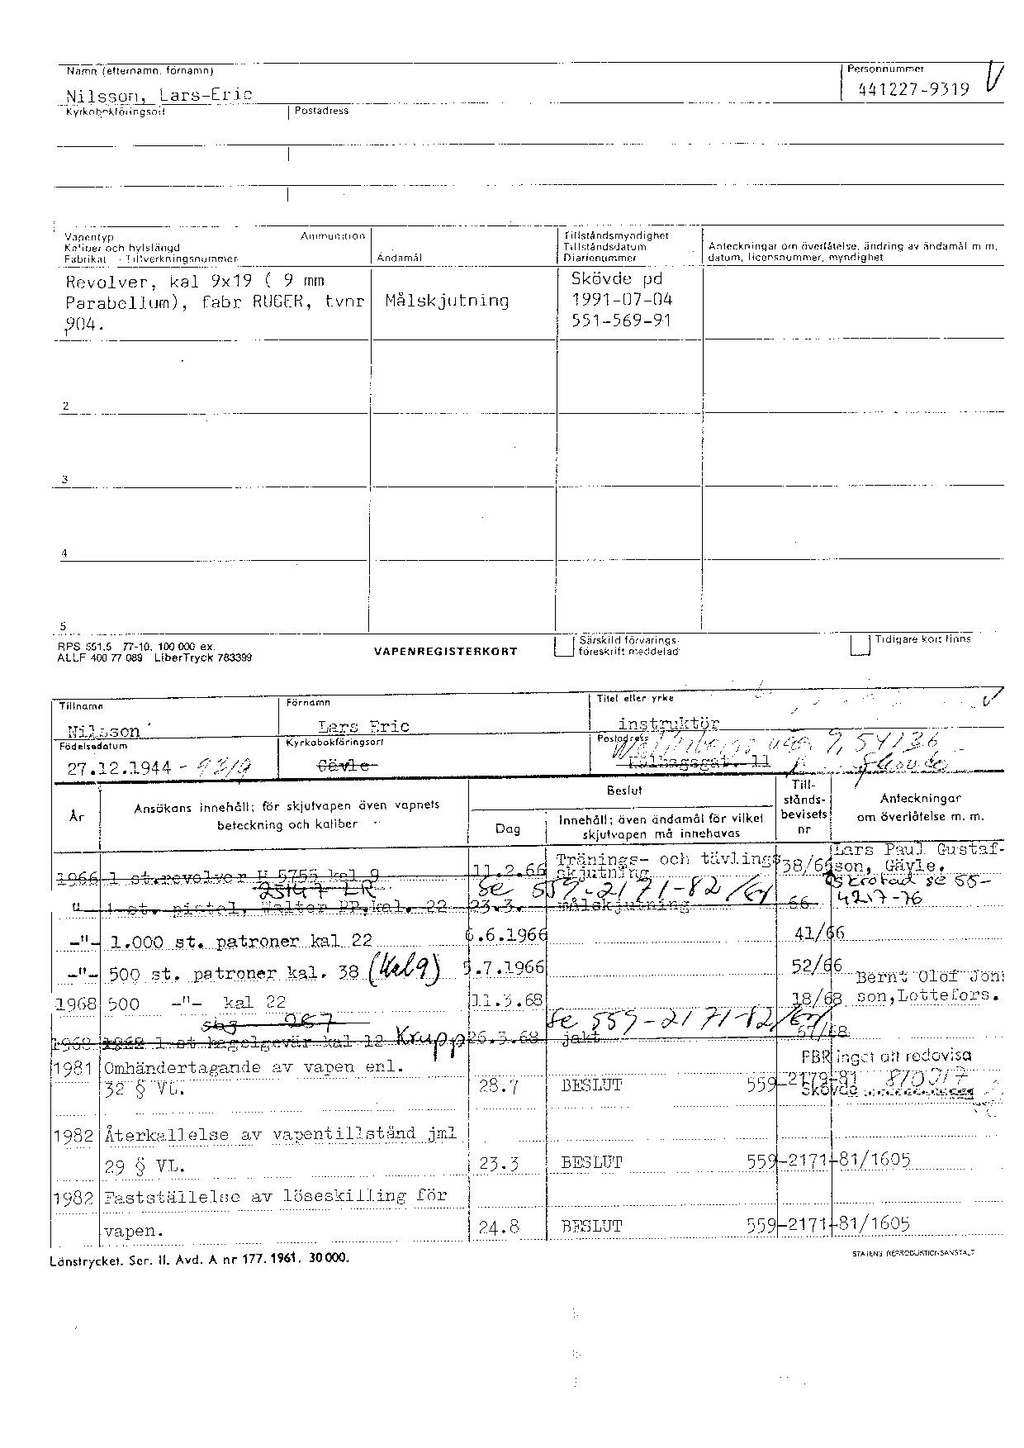 Namn (efternamn, förnamn)
Personnummer
Nilsson, Lars-Eric
441227-9319 V
Kyrkobokföringsort
Postadress
Vapentyp
Kaliber och hylslängd
Fabrikat - Tillverkningsnummer
Ammunition
Ändamål
Tillståndsmyndighet
Tillståndsdatum
Diarienummer
Anteckningar om överlåtelse, ändring av ändamål m m,
datum, licensnummer, myndighet
Revolver, kal 9x19 ( 9 mm
Parabellum), fabr RUGER, tvnr
904.
Målskjutning
Skövde pd
1991-07-04
551-569-91
1
2
3
4
5
RPS 551.5 77-10. 100 000 ex.
ALLF 400 77 089 LiberTryck 783399
VAPENREGISTERKORT
Särskild förvarings-
föreskrift meddelad
Tidigare kort finns
Tillnamn
Förnamn
Titel eller yrke
Nilsson
Lars Eric
instruktör
V
Födelsedatum
Kyrkobokföringsort
Postadress
27.12.1944 - 9319
Gävle
9, 54136
gat. 11
Skövde
År
Ansökans innehåll; för skjutvapen även vapnets
beteckning och kaliber
Beslut
Dag
Innehåll; även ändamål för vilket
skjutvapen må innehavas
Till-
stånds-
bevisets
nr
Anteckningar
om överlåtelse m. m.
1966 1 st.revolver H 5755 kal 9
11.2.66
Tränings- och tävlings
skjutning
38/66
Lars Paul Gustaf-
son, Gävle.
25147 LR
Se 559-2171-82/
Skrotad se 55-
4217-76
" 1 st. pistol, Walter PP, kal. 22 23.3. målskjutning 66
-"- 1.000 st. patroner kal 22 6.6.1966 41/66
-"- 500 st. patroner kal. 38 (Kal 9) 5.7.1966 52/66
1968 500 -"- kal 22 11.3.68 18/68
Bernt Olof Jon
son, Lottefors.
sbg 267
Se 559-2171-82/
1968 1968 1 st hagelgevär kal 12 Krupp 26.3.68 jakt 67/68
1981 Omhändertagande av vapen enl.
32 § VL.
28.7 BESLUT 559-2179-81
FBR inget att redovisa
Skövde
1982 Återkallelse av vapentillstånd jml
29 § VL. 23.3 BESLUT 559-2171-81/1605
1982 Fastställelse av löseskilling för
vapen. 24.8 BESLUT 559-2171-81/1605
Länstrycket. Ser. II. Avd. A nr 177. 1961. 30 000.
STATENS REPRODUKTIONSANSTALT